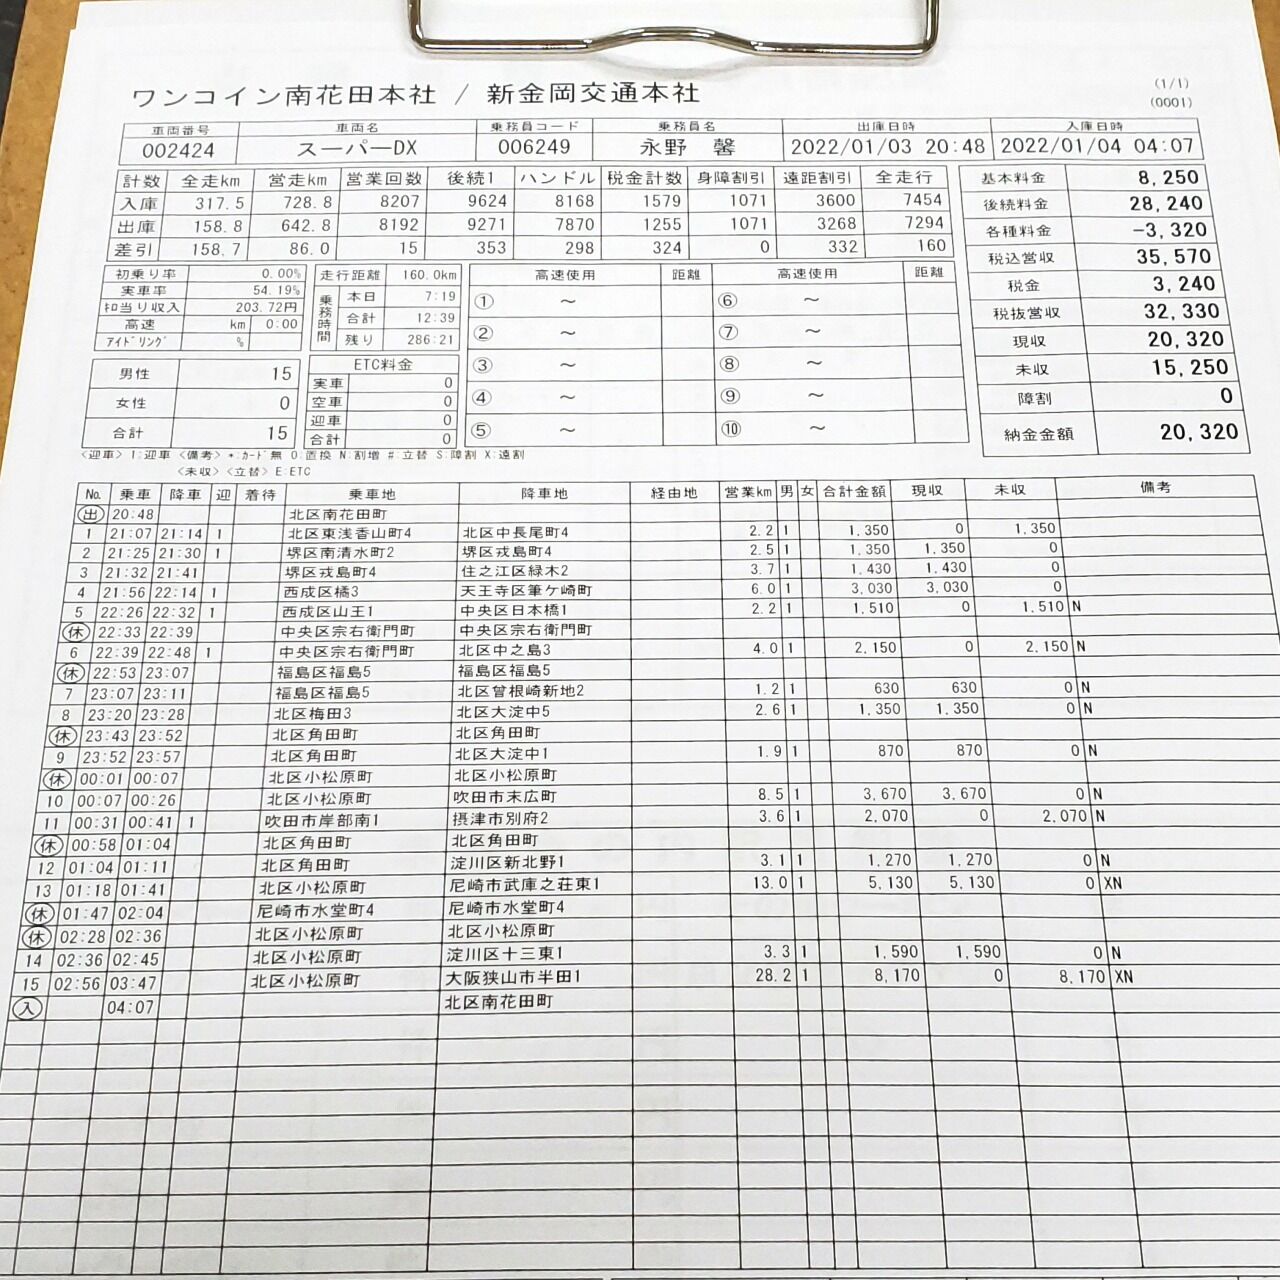 ワンコイン南花田本社 / 新金岡交通本社
(1/1)
(0001)
車両番号 車両名 乗務員コード 乗務員名 出庫日時 入庫日時
002424 スーパーDX 006249 永野 馨 2022/01/03 20:48 2022/01/04 04:07
計数 全走km 営走km 営業回数 後続1 ハンドル 税金計数 身障割引 遠距割引 全走行
入庫 317.5 728.8 8207 9624 8168 1579 1071 3600 7454
出庫 158.8 642.8 8192 9271 7870 1255 1071 3268 7294
差引 158.7 86.0 15 353 298 324 0 332 160
基本料金 8,250
後続料金 28,240
各種料金 -3,320
税込営収 35,570
税金 3,240
税抜営収 32,330
現収 20,320
未収 15,250
障割 0
納金金額 20,320
初乗り率 0.00%
実車率 54.19%
ｷﾛ当り収入 203.72円
高速 km 0:00
ｱｲﾄﾞﾘﾝｸﾞ %
走行距離 160.0km
乗務時間 本日 7:19
合計 12:39
残り 286:21
高速使用 距離 高速使用 距離
① ～ ⑥ ～
② ～ ⑦ ～
③ ～ ⑧ ～
④ ～ ⑨ ～
⑤ ～ ⑩ ～
男性 15
女性 0
合計 15
ETC料金
実車 0
空車 0
迎車 0
合計 0
<迎車> 1:迎車 <備考> *:ｶｰﾄﾞ無 O:置換 N:割増 #:立替 S:障割 X:遠割
<未収> <立替> E:ETC
No. 乗車 降車 迎 着待 乗車地 降車地 経由地 営業km 男 女 合計金額 現収 未収 備考
出 20:48 北区南花田町
1 21:07 21:14 1 北区東浅香山町4 北区中長尾町4 2.2 1 1,350 0 1,350
2 21:25 21:30 1 堺区南清水町2 堺区戎島町4 2.5 1 1,350 1,350 0
3 21:32 21:41 堺区戎島町4 住之江区緑木2 3.7 1 1,430 1,430 0
4 21:56 22:14 1 西成区橘3 天王寺区筆ケ崎町 6.0 1 3,030 3,030 0
5 22:26 22:32 1 西成区山王1 中央区日本橋1 2.2 1 1,510 0 1,510 N
休 22:33 22:39 中央区宗右衛門町 中央区宗右衛門町
6 22:39 22:48 1 中央区宗右衛門町 北区中之島3 4.0 1 2,150 0 2,150 N
休 22:53 23:07 福島区福島5 福島区福島5
7 23:07 23:11 福島区福島5 北区曽根崎新地2 1.2 1 630 630 0 N
8 23:20 23:28 北区梅田3 北区大淀中5 2.6 1 1,350 1,350 0 N
休 23:43 23:52 北区角田町 北区角田町
9 23:52 23:57 北区角田町 北区大淀中1 1.9 1 870 870 0 N
休 00:01 00:07 北区小松原町 北区小松原町
10 00:07 00:26 北区小松原町 吹田市末広町 8.5 1 3,670 3,670 0 N
11 00:31 00:41 1 吹田市岸部南1 摂津市別府2 3.6 1 2,070 0 2,070 N
休 00:58 01:04 北区角田町 北区角田町
12 01:04 01:11 北区角田町 淀川区新北野1 3.1 1 1,270 1,270 0 N
13 01:18 01:41 北区小松原町 尼崎市武庫之荘東1 13.0 1 5,130 5,130 0 XN
休 01:47 02:04 尼崎市水堂町4 尼崎市水堂町4
休 02:28 02:36 北区小松原町 北区小松原町
14 02:36 02:45 北区小松原町 淀川区十三東1 3.3 1 1,590 1,590 0 N
15 02:56 03:47 北区小松原町 大阪狭山市半田1 28.2 1 8,170 0 8,170 XN
入 04:07 北区南花田町